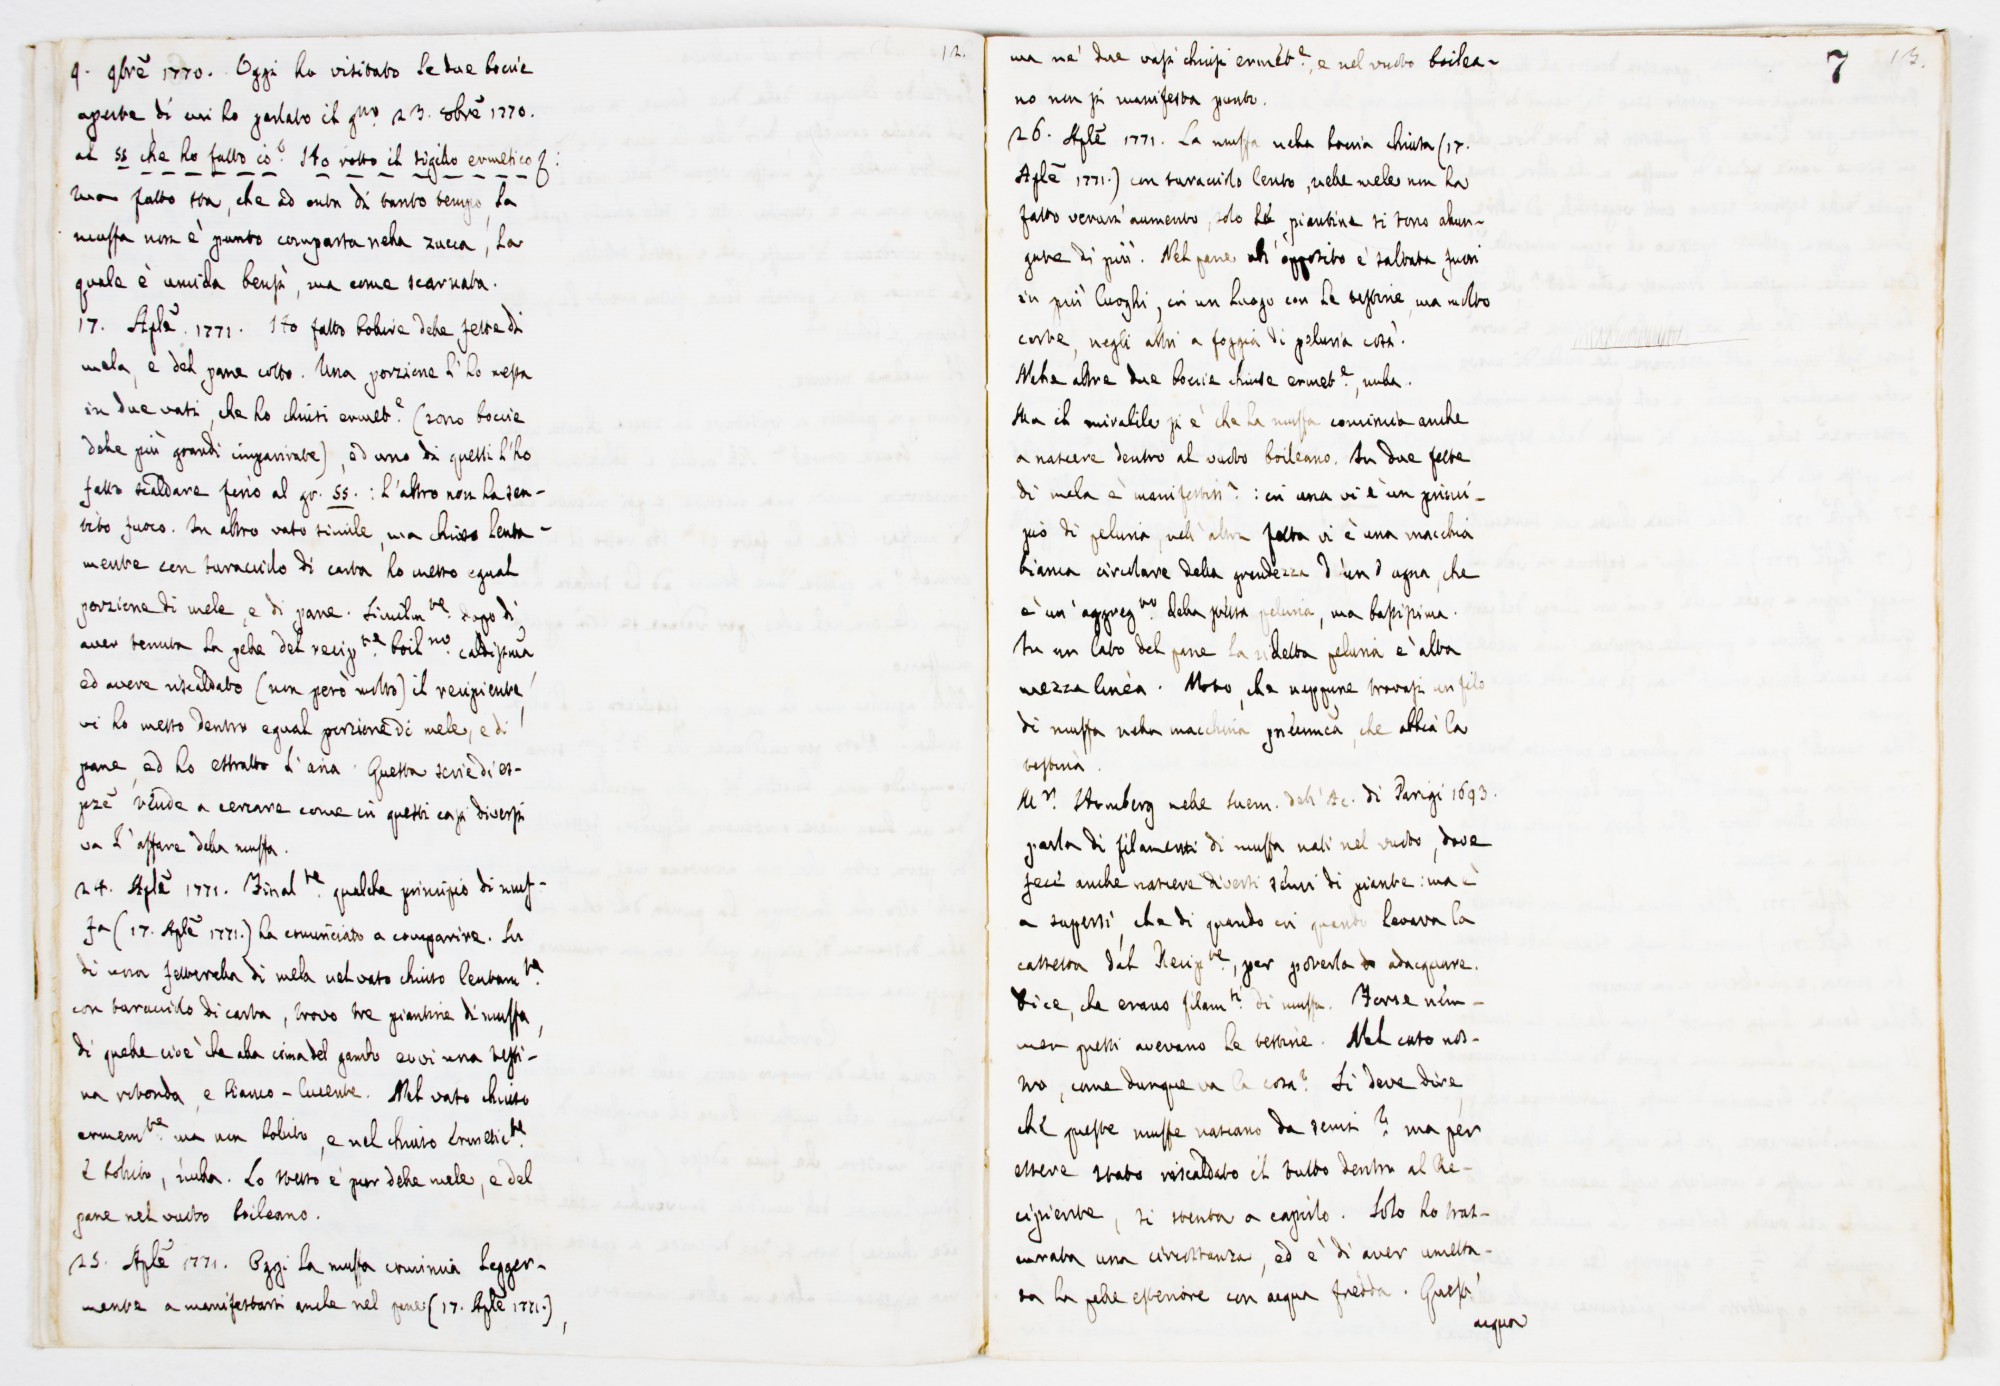 12.
9. 9bre 1770. Oggi ho visitato le due bocie
aperte di cui ho parlato il g.no 23. 8bre 1770.
al ss che ho fatto ciò? Ho rotto il sigillo ermetico
ma fatto sta, che ad onta di tanto tempo, la
muffa non è punto comparsa nella zucca, la
quale è umida bensì, ma come scarnata.
17. Aple. 1771. Ho fatto bollire delle fette di
mela, e del pane cotto. Una porzione l'ho messa
in due vasi, che ho chiusi ermet.e (sono boccie
delle più grandi ), ed uno di questi l'ho
fatto scaldare fino al gr. 55. : l'altro non ha sen-
tito fuoco. In altro vaso simile, ma chiuso lenta-
mente con turacciolo di carta ho messo egual
porzione di mele, e di pane. Similm.te dopo di
aver tenuta la pelle del recip.te boil.no caldissima
ed avere riscaldato (non però molto) il recipiente,
vi ho messo dentro egual porzione di mele, e di
pane, ed ho estratto l'aria. Questa serie di es-
pze tende a cercare come in questi casi diversi
va l'affare della muffa.
24. Aple 1771. Final.te qualche principio di muf-
fa (17. Aple 1771.) ha cominciato a comparire. Su
di una fetterella di mela nel vaso chiuso lentam.te
con turacciolo di carta, trovo tre piantine di muffa,
di quelle cioè che alla cima del gambo evvi una testi-
na rotonda, e bianco-lucente. Nel vaso chiuso
ermem.te ma non bollito, e nel chiuso ermetic.te
e bollito, nulla. Lo stesso è pur delle mele, e del
pane nel vuoto boileano.
25. Aple 1771. Oggi la muffa comincia legger-
mente a manifestarsi anche nel pane (17. Aple 1771.),
7 13.
ma ne' due vasi chiusi ermet.e, e nel vuoto boilea-
no non si manifesta punto.
26. Aple 1771. La muffa nella boccia chiusa (17.
Aple 1771.) con turacciolo lento, nelle mele non ha
fatto verun' aumento, solo le piantine si sono allun-
gate di più. Nel pane all'opposito è saltata fuori
in più luoghi, in un luogo con le testine, ma molto
corte, negli altri a foggia di peluria così.
Nelle altre due boccie chiuse ermet.e, nulla.
Ma il mirabile si è che la muffa comincia anche
a nascere dentro al vuoto boileano. In due fette
di mela è manifestiss.a : in una vi è un princi-
pio di peluria, nell'altra fetta vi è una macchia
bianca circolare della grandezza d'un' ugna, che
è un' aggreg.to della stessa peluria, ma bassissima.
In un lato del pane la sudetta peluria è alta
mezza linea. Noto, che neppure trovasi un filo
di muffa nella macchina pneumca, che abbia la
testina.
Mr. Homberg nelle mem. dell'Ac. di Parigi 1693.
parla di filamenti di muffa nati nel vuoto, dove
fece anche nascere diversi semi di piante: ma è
a sapersi, che di quando in quando levava la
cassetta dal Recip.te, per poterla adacquare.
Dice, che erano filam.ti di muffa. Forse nem-
men questi avevano le testine. Nel caso nos-
tro, come dunque va la cosa? Si deve dire,
che queste muffe nascano da semi? ma per
essere stato riscaldato il tutto dentro al Re-
cipiente, si stenta a capirlo. Solo ho tras-
curata una circostanza, ed è di aver umetta-
ta la pelle esteriore con acqua fredda. Quest'
acqua